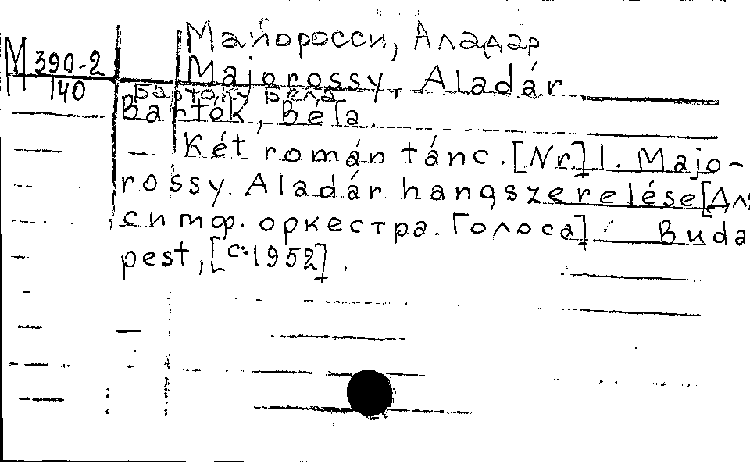 Майоросси, Аладар
М 390-2
140
Majorossy, Aladár
Барток, Бела
Bartók, Béla.
Két román tánc. [Nr.] 1. Majo-
rossy Aladár hangszerelése [Дл
симф. оркестра. Голоса] Buda
pest, [c. 1952].